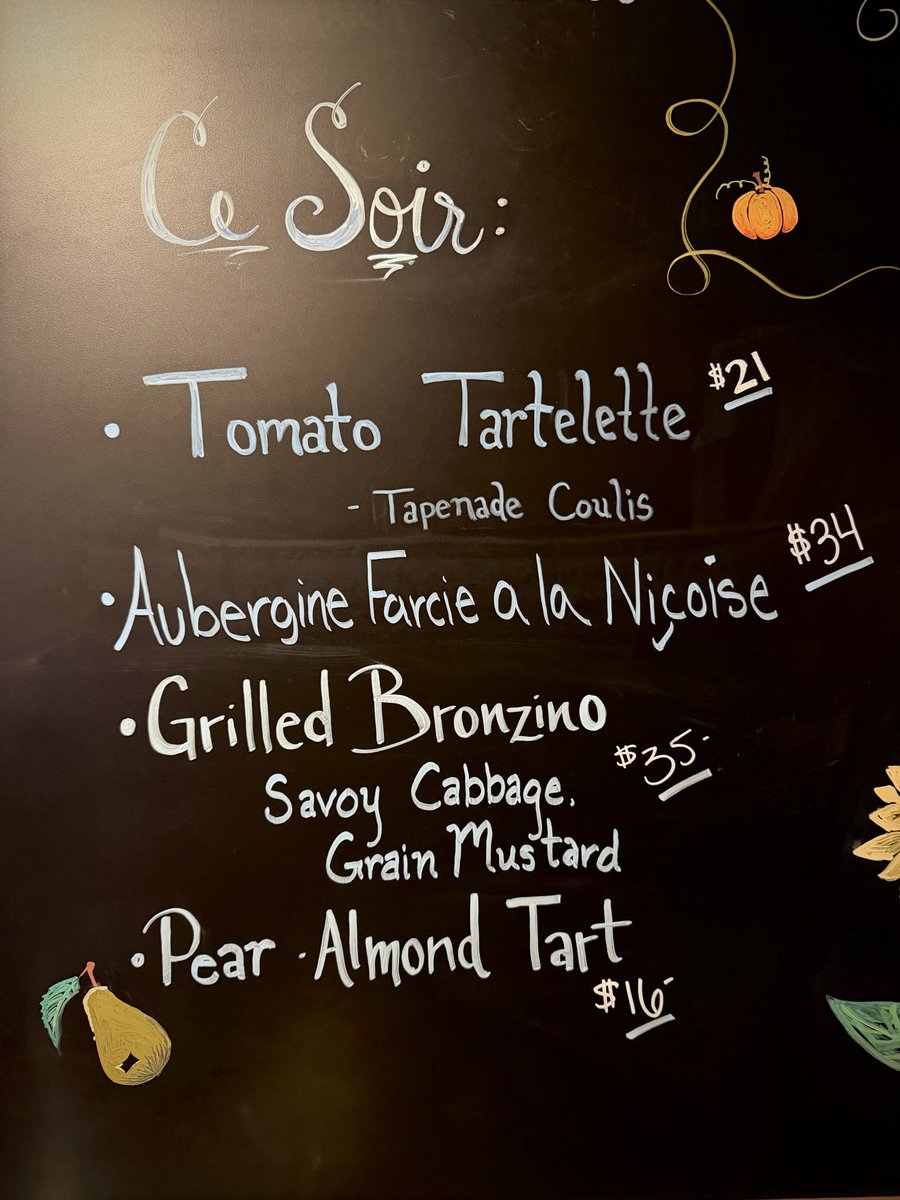 Ce Soir:
• Tomato Tartelette $21
- Tapenade Coulis
• Aubergine Farcie a la Niçoise $34
• Grilled Bronzino
$35-
Savoy Cabbage,
Grain Mustard
• Pear · Almond Tart
$16-